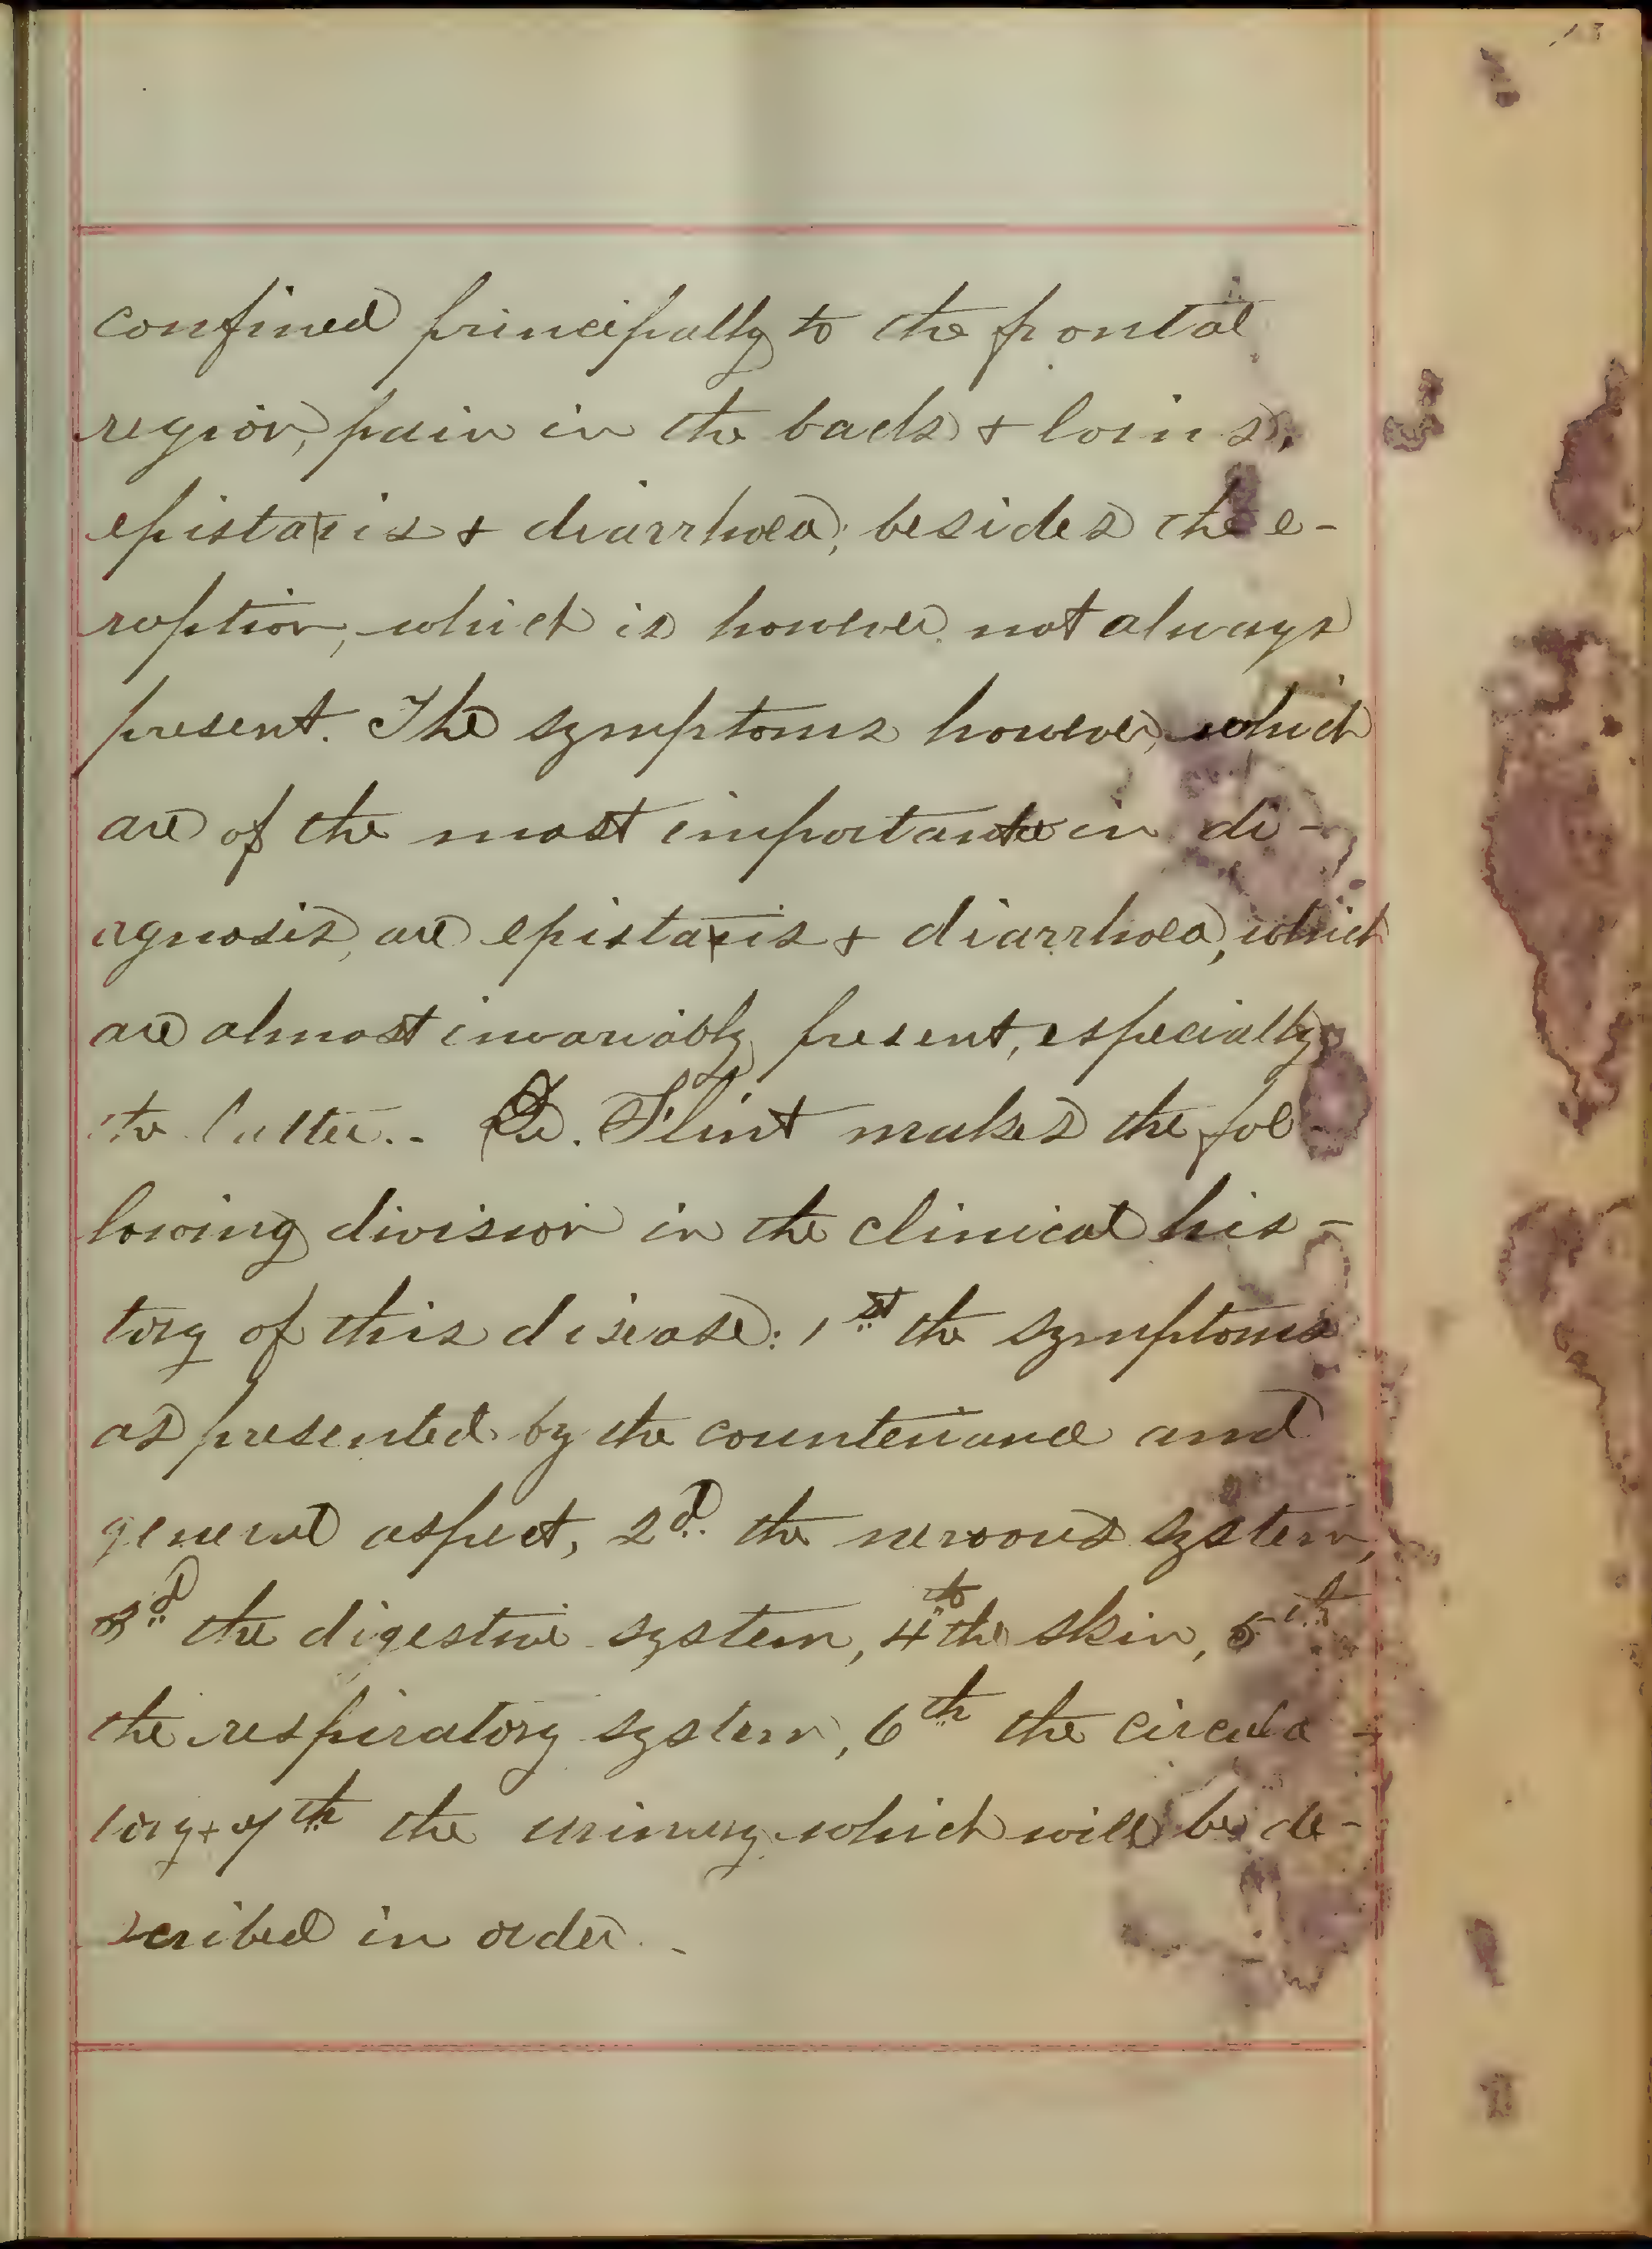 13
confined principally to the frontal
region, pain in the back & loins,
epistaxis & diarrhoea; besides the e-
ruption, which is however not always
present. The symptoms however, which
are of the most importance in di-
agnosis, are epistaxis & diarrhoea, which
are almost invariably present, especially
the latter.- Dr. Flint makes the fol-
lowing division in the clinical his-
tory of this disease: 1st the symptoms
as presented by the countenance and
general aspect, 2d. the nervous system,
3d the digestive system, 4th the skin, 5th
the respiratory system, 6th the circula-
tory & 7th the urinary which will be de-
scribed in order.-